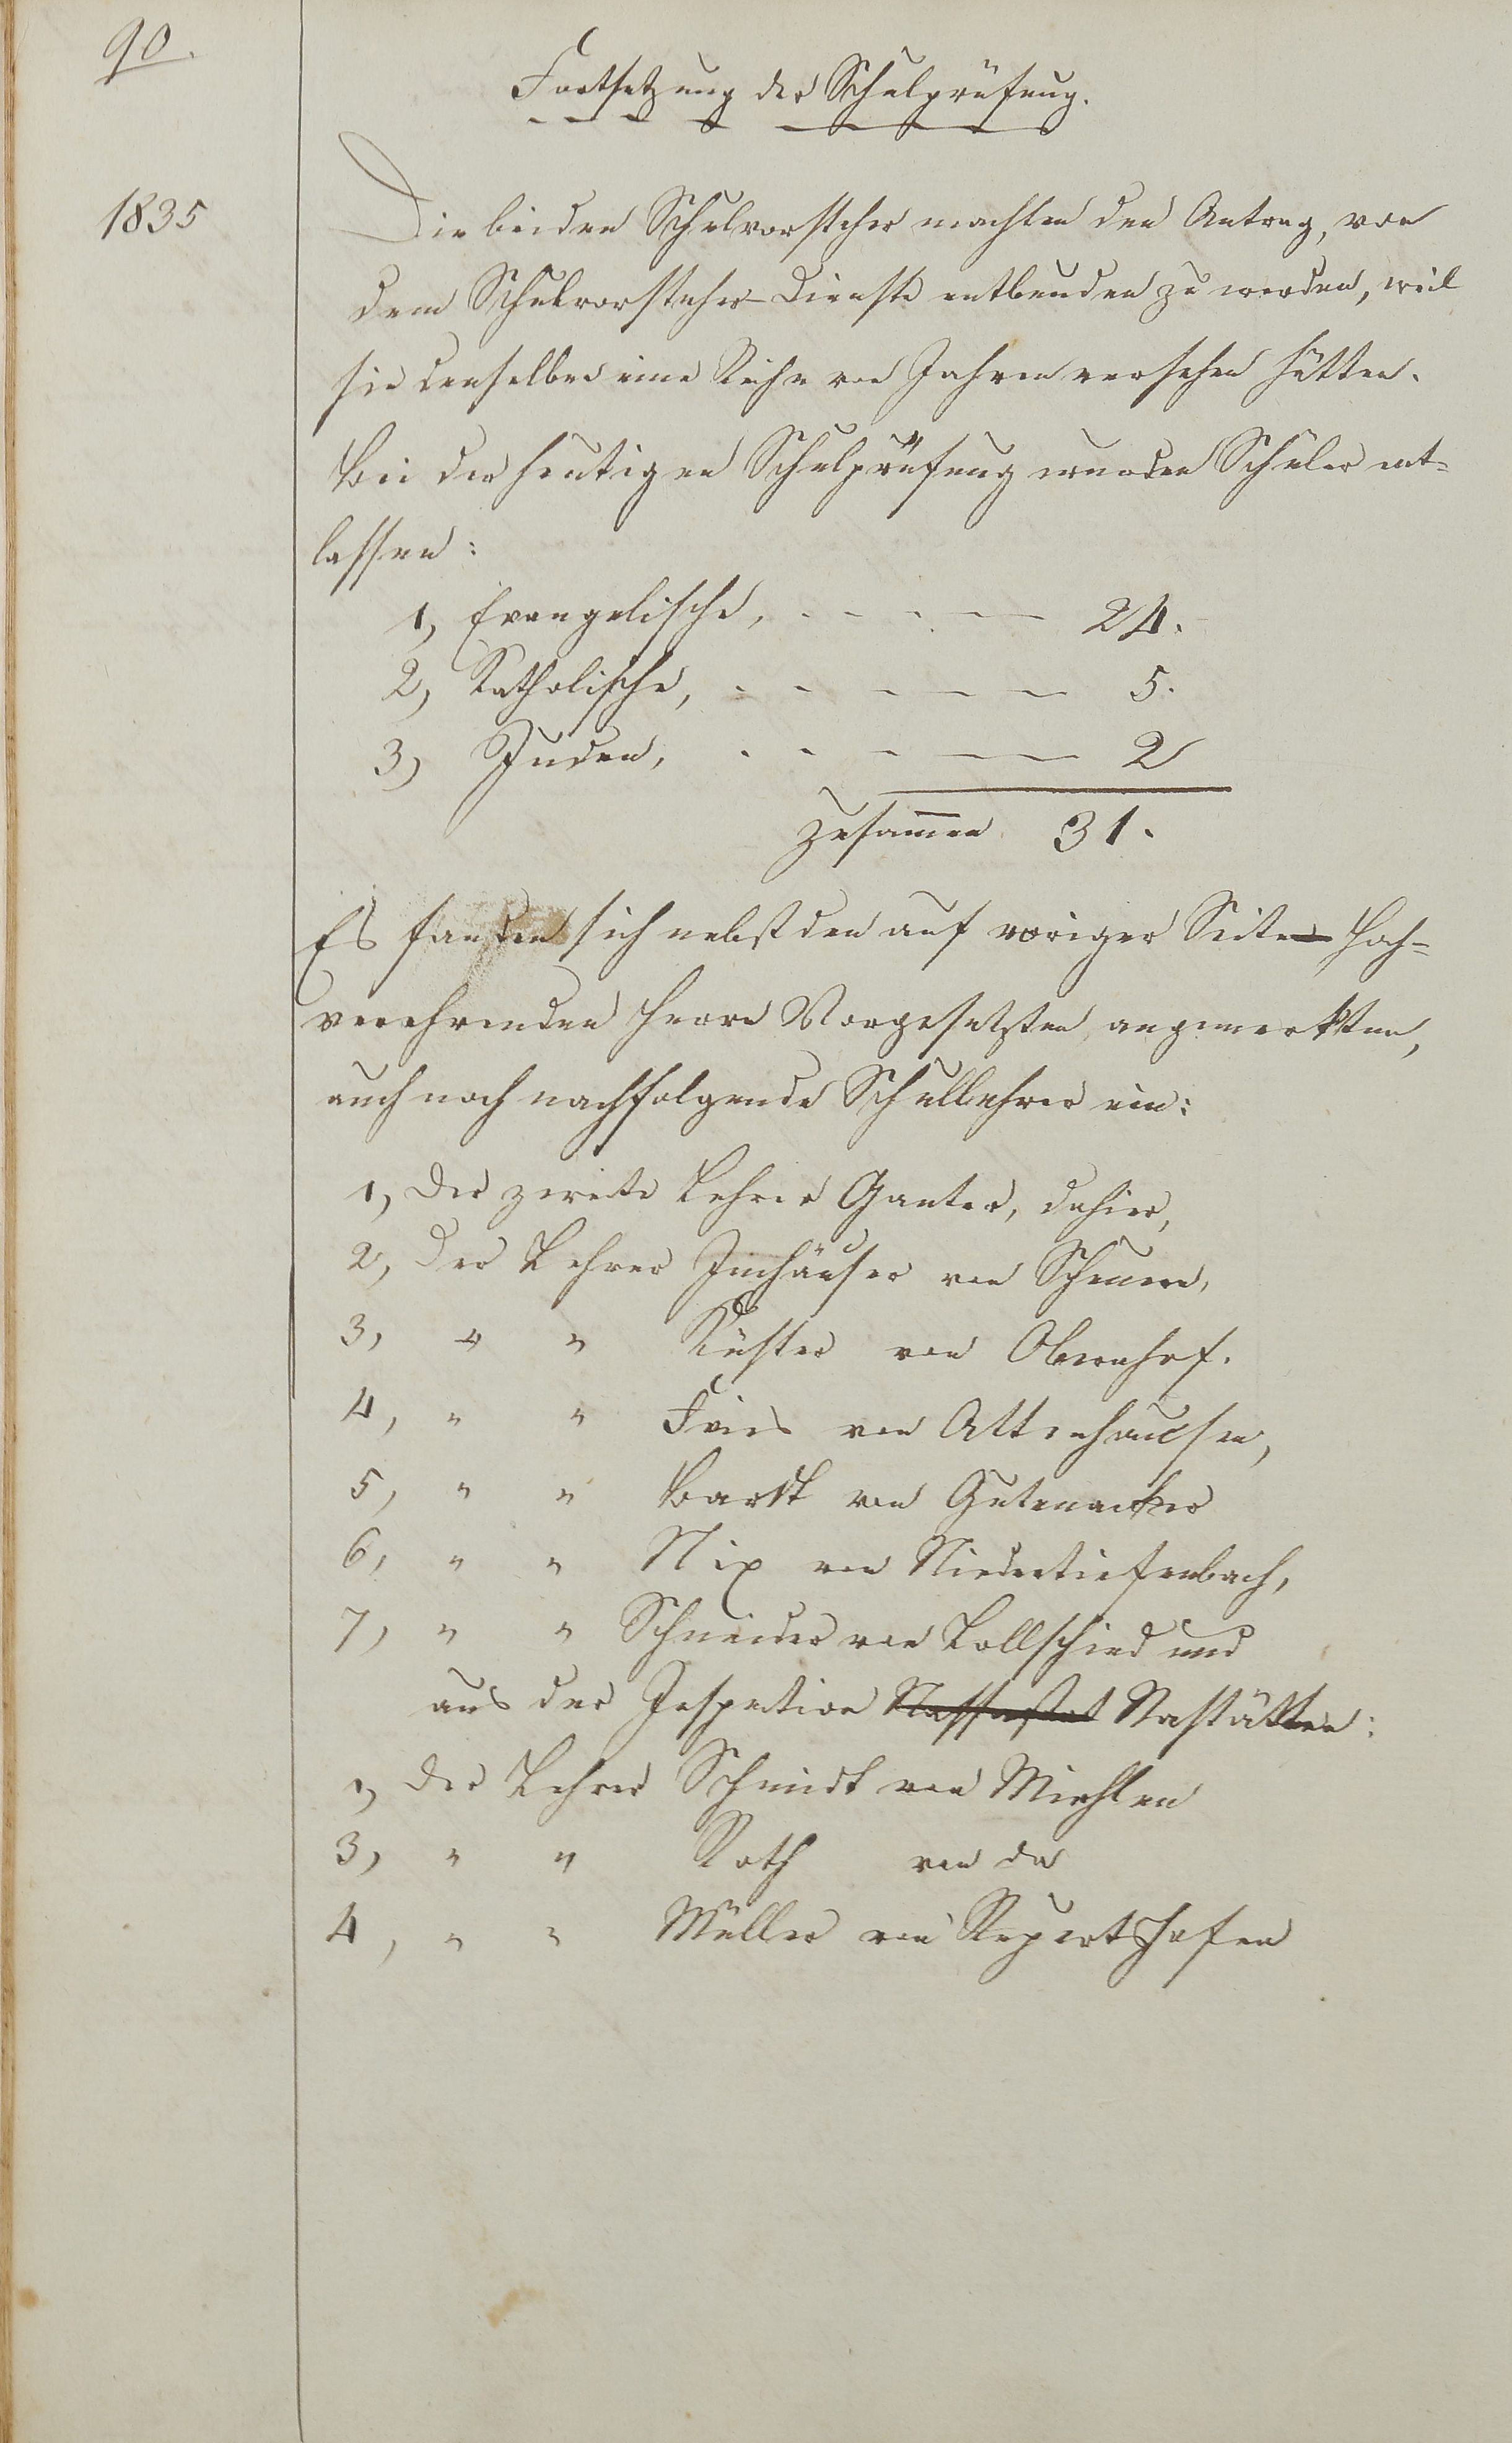 90.
Fortsetzung der Schulprüfung.
1835
Die beiden Schulvorsteher machten den Antrag, von
dem Schulvorsteher-Dienste entbunden zu werden, weil
sie denselben eine Reihe von Jahren versehen hätten.
Bei der heutigen Schulprüfung wurden Schüler ent-
lassen:
1, Evangelische, - - - - 24.
2, Katholische, - - - - - 5.
3, Juden, - - - - 2
zusamen 31.
Es fanden sich nebst den auf voriger Seite hoch-
verehrenden Herrn Vorgesetzten angemerkten,
auch noch nachfolgende Schullehrer ein:
1, Der zweite Lehrer Ganter, dahier,
2, Der Lehrer Imhäuser von Scheuern,
3, " " Küster von Obernhof.
4, " " Fries von Attenhausen,
5, " " Bardt von Gutenacker
6, " " Nix von Niedertiefenbach,
7, " " Schneider von Lollschied und
aus der Inspection Nastätten:
1, Der Lehrer Schmidt von Miehlen
3, " " Roth von da
4, " " Müller von Rupertshofen